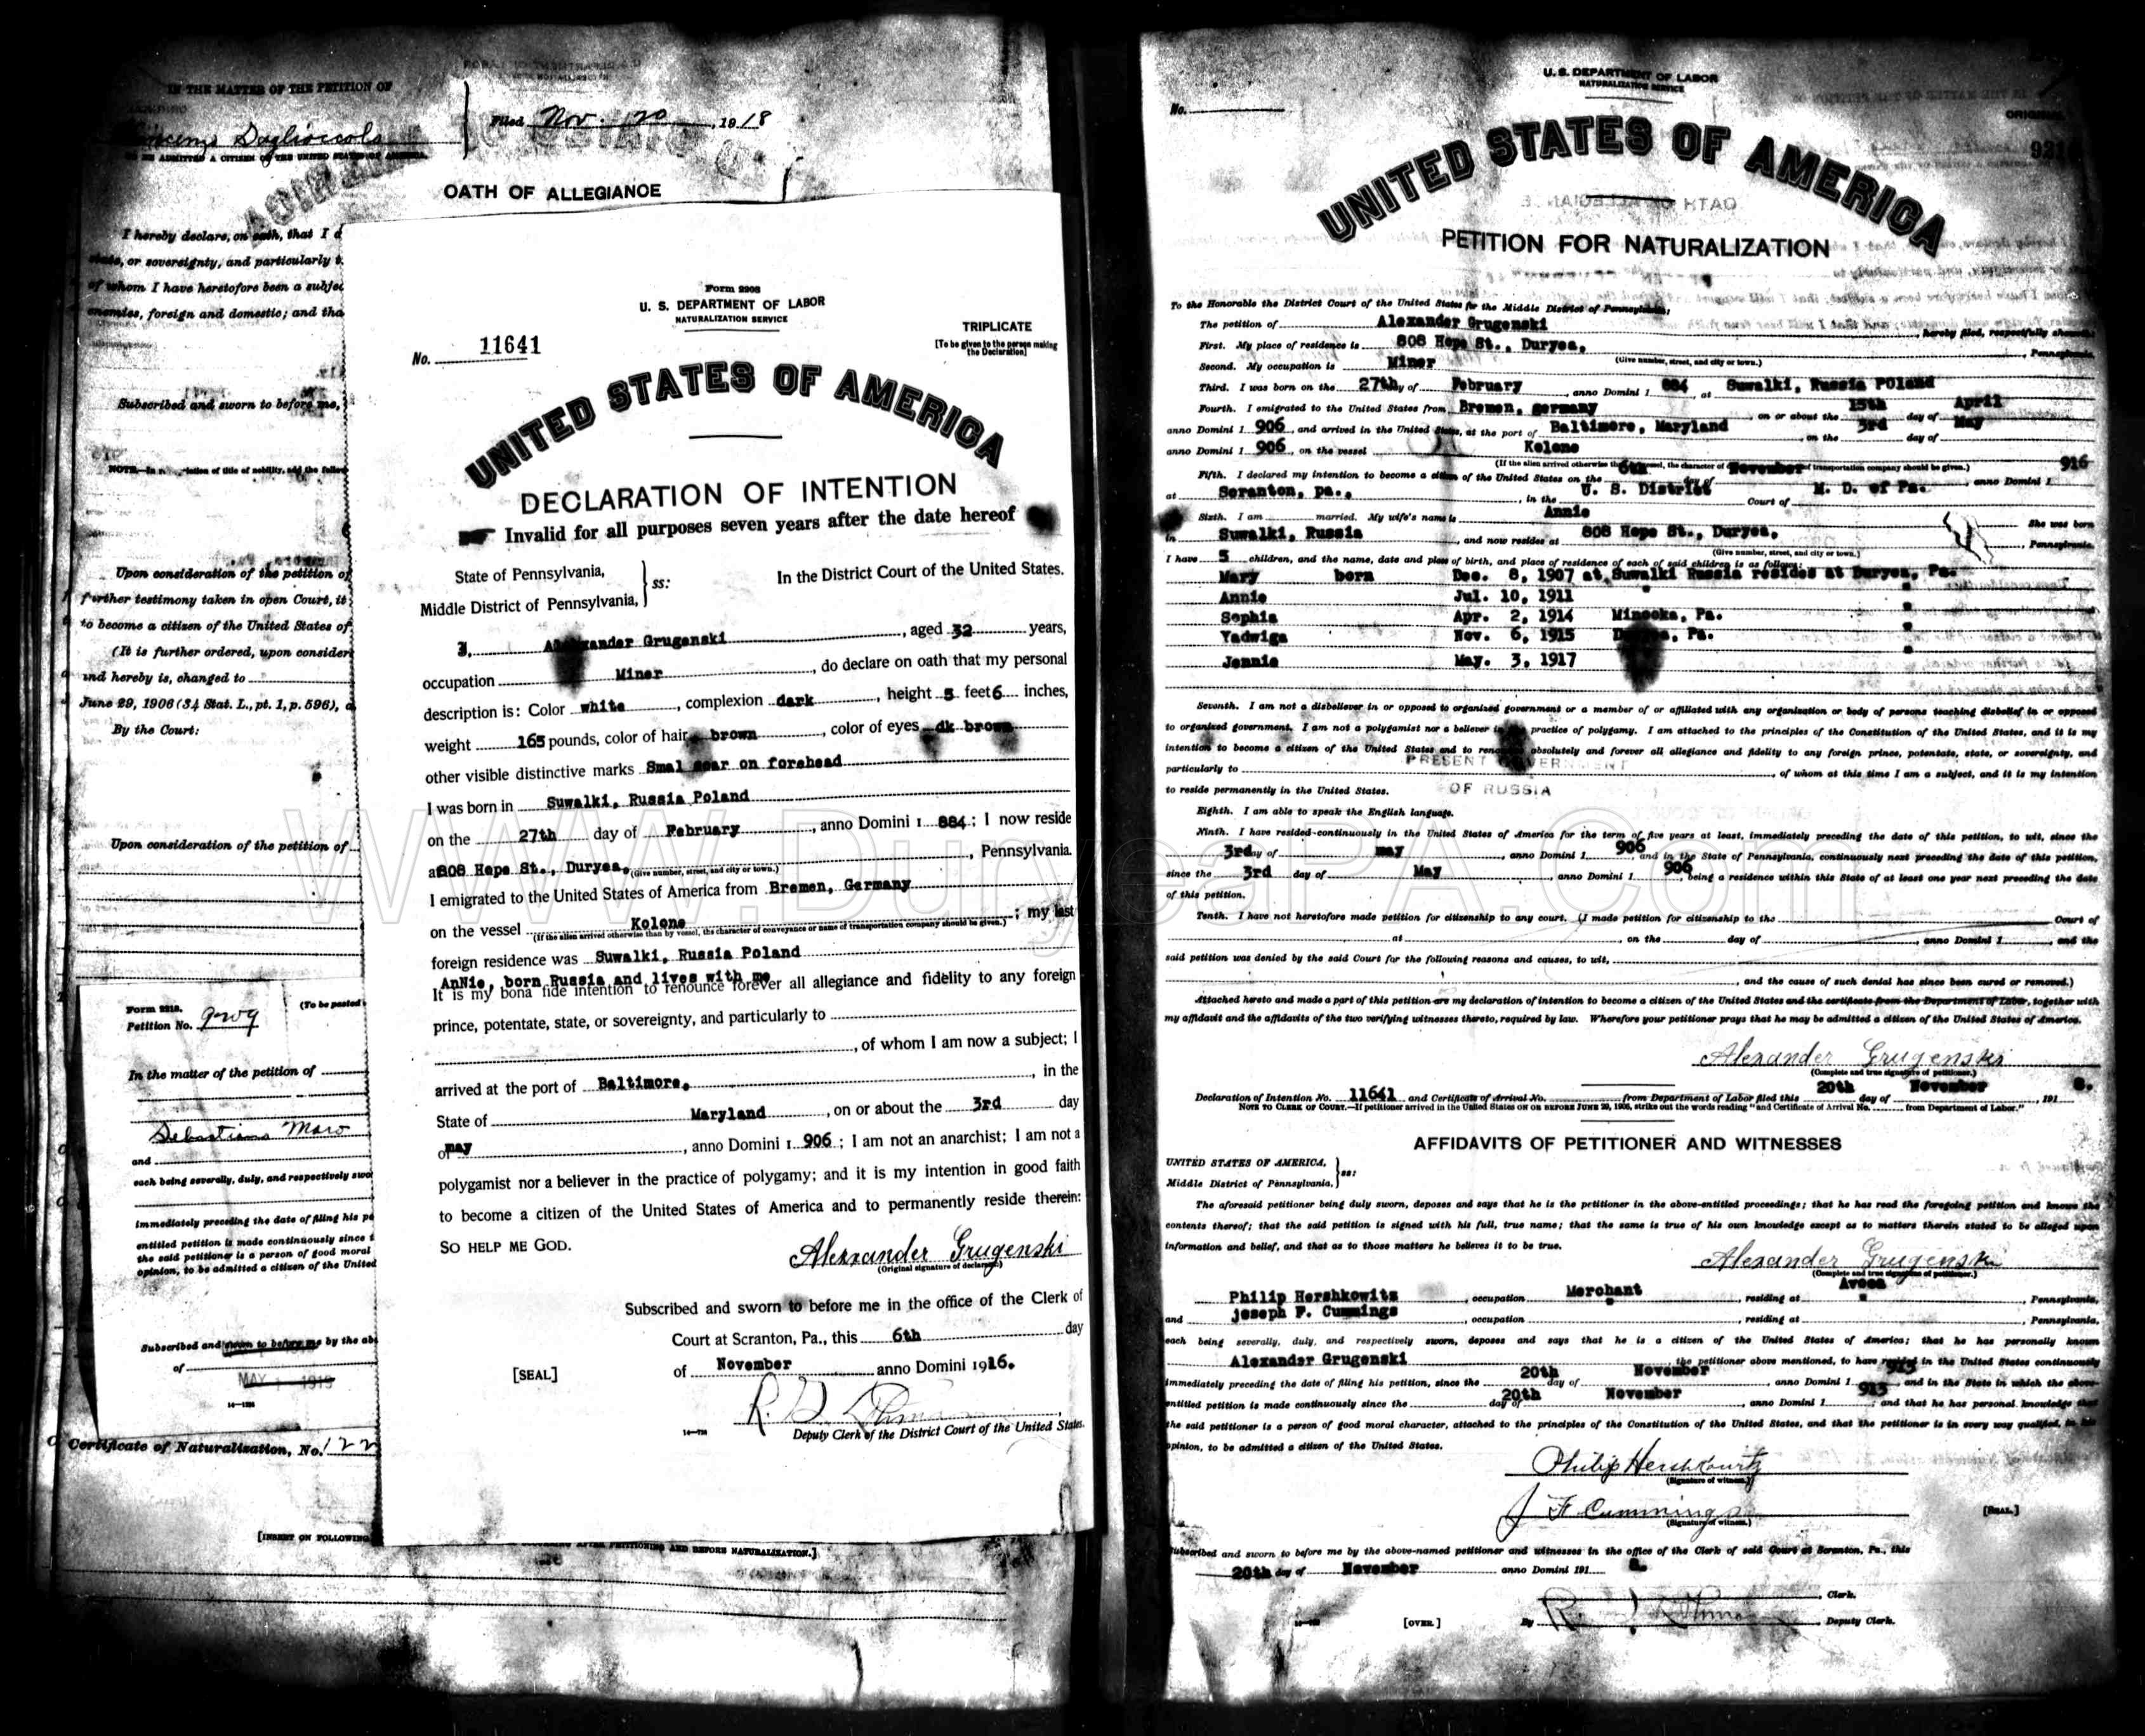 IN THE MATTER OF THE PETITION OF
Filed Nov. 20, 1918
TO BE ADMITTED A CITIZEN OF THE UNITED STATES OF AMERICA.
OATH OF ALLEGIANCE
I hereby declare, on oath, that I d
state, or sovereignty, and particularly t
of whom I have heretofore been a subjec
enemies, foreign and domestic; and tha
Subscribed and sworn to before me,
Upon consideration of the petition of
further testimony taken in open Court, it
to become a citizen of the United States of
(It is further ordered, upon consider
and hereby is, changed to
June 29, 1906 (34 Stat. L., pt. 1, p. 596),
By the Court:
Upon consideration of the petition of
Form 2218.
Petition No.
(To be pasted
In the matter of the petition of
Sebastiano Moro
and
each being severally, duly, and respectively swo
immediately preceding the date of filing his pe
entitled petition is made continuously since t
the said petitioner is a person of good moral
opinion, to be admitted a citizen of the United
Subscribed and sworn to before me by the abo
of
MAY 1919
Certificate of Naturalization, No. 122
[INSERT ON FOLLOWING
AFTER PETITIONING AND BEFORE NATURALIZATION.]
Form 2203
U. S. DEPARTMENT OF LABOR
NATURALIZATION SERVICE
No. 11641
TRIPLICATE
[To be given to the person making the Declaration]
UNITED STATES OF AMERICA
DECLARATION OF INTENTION
Invalid for all purposes seven years after the date hereof
State of Pennsylvania,
Middle District of Pennsylvania, } ss:
In the District Court of the United States.
I, Alexander Grugenski, aged 32 years,
occupation Miner, do declare on oath that my personal
description is: Color white, complexion dark, height 5 feet 6 inches,
weight 165 pounds, color of hair brown, color of eyes dk brown
other visible distinctive marks Smal scar on forehead
I was born in Suwalki, Russia Poland
on the 27th day of February, anno Domini 1 884; I now reside
a 808 Hope St., Duryea, (Give number, street, and city or town.), Pennsylvania.
I emigrated to the United States of America from Bremen, Germany
on the vessel Kolone; my last
(If the alien arrived otherwise than by vessel, the character of conveyance or name of transportation company should be given.)
foreign residence was Suwalki, Russia Poland
AnNie, born Russia and lives with me
It is my bona fide intention to renounce forever all allegiance and fidelity to any foreign
prince, potentate, state, or sovereignty, and particularly to
, of whom I am now a subject; I
arrived at the port of Baltimore, in the
State of Maryland, on or about the 3rd day
of may, anno Domini 1 906; I am not an anarchist; I am not a
polygamist nor a believer in the practice of polygamy; and it is my intention in good faith
to become a citizen of the United States of America and to permanently reside therein:
SO HELP ME GOD.
Alexander Grugenski
(Original signature of declarant)
Subscribed and sworn to before me in the office of the Clerk of
Court at Scranton, Pa., this 6th day
[SEAL] of November anno Domini 1916.
Deputy Clerk of the District Court of the United States.
U. S. DEPARTMENT OF LABOR
NATURALIZATION SERVICE
No.
ORIGINAL
UNITED STATES OF AMERICA
PETITION FOR NATURALIZATION
To the Honorable the District Court of the United States for the Middle District of Pennsylvania:
The petition of Alexander Grugenski, hereby filed, respectfully shows:
First. My place of residence is 808 Hope St., Duryea, Pennsylvania.
(Give number, street, and city or town.)
Second. My occupation is Miner
Third. I was born on the 27th day of February, anno Domini 1 884, at Suwalki, Russia POland
Fourth. I emigrated to the United States from Bremen, germany on or about the 15th day of April
anno Domini 1 906, and arrived in the United States, at the port of Baltimore, Maryland, on the 3rd day of May
anno Domini 1 906, on the vessel Kolone
(If the alien arrived otherwise than by vessel, the character of conveyance or name of transportation company should be given.)
Fifth. I declared my intention to become a citizen of the United States on the 6th day of November, anno Domini 1 916
at Scranton, pa., in the U. S. District Court of M. D. of Pa.
Sixth. I am married. My wife's name is Annie She was born
in Suwalki, Russia, and now resides at 808 Hope St., Duryea, Pennsylvania.
(Give number, street, and city or town.)
I have 5 children, and the name, date and place of birth, and place of residence of each of said children is as follows:
Mary born Dec. 8, 1907 at Suwalki Russia resides at Duryea, Pa.
Annie Jul. 10, 1911 " "
Sophia Apr. 2, 1914 Minooka, Pa. "
Yadwiga Nov. 6, 1915 Duryea, Pa. "
Jennie May. 3, 1917 "
Seventh. I am not a disbeliever in or opposed to organized government or a member of or affiliated with any organization or body of persons teaching disbelief in or opposed
to organized government. I am not a polygamist nor a believer in the practice of polygamy. I am attached to the principles of the Constitution of the United States, and it is my
intention to become a citizen of the United States and to renounce absolutely and forever all allegiance and fidelity to any foreign prince, potentate, state, or sovereignty, and
particularly to PRESENT GOVERNMENT, of whom at this time I am a subject, and it is my intention
to reside permanently in the United States. OF RUSSIA
Eighth. I am able to speak the English language.
Ninth. I have resided continuously in the United States of America for the term of five years at least, immediately preceding the date of this petition, to wit, since the
3rd day of may, anno Domini 1 906, and in the State of Pennsylvania, continuously next preceding the date of this petition,
since the 3rd day of May, anno Domini 1 906, being a residence within this State of at least one year next preceding the date
of this petition.
Tenth. I have not heretofore made petition for citizenship to any court. (I made petition for citizenship to the Court of
at, on the day of, anno Domini 1, and the
said petition was denied by the said Court for the following reasons and causes, to wit,
, and the cause of such denial has since been cured or removed.)
Attached hereto and made a part of this petition are my declaration of intention to become a citizen of the United States and the certificate from the Department of Labor, together with
my affidavit and the affidavits of the two verifying witnesses thereto, required by law. Wherefore your petitioner prays that he may be admitted a citizen of the United States of America.
Alexander Grugenski
(Complete and true signature of petitioner.)
Declaration of Intention No. 11641 and Certificate of Arrival No. from Department of Labor filed this 20th day of November 191 8.
NOTE TO CLERK OF COURT.—If petitioner arrived in the United States ON OR BEFORE JUNE 29, 1906, strike out the words reading "and Certificate of Arrival No. from Department of Labor."
AFFIDAVITS OF PETITIONER AND WITNESSES
UNITED STATES OF AMERICA,
Middle District of Pennsylvania, } ss:
The aforesaid petitioner being duly sworn, deposes and says that he is the petitioner in the above-entitled proceedings; that he has read the foregoing petition and knows the
contents thereof; that the said petition is signed with his full, true name; that the same is true of his own knowledge except as to matters therein stated to be alleged upon
information and belief, and that as to those matters he believes it to be true.
Alexander Grugenski
(Complete and true signature of petitioner.)
Philip Hershkowitz, occupation Merchant, residing at Avoca, Pennsylvania,
and joseph F. Cummings, occupation ", residing at ", Pennsylvania,
each being severally, duly, and respectively sworn, deposes and says that he is a citizen of the United States of America; that he has personally known
Alexander Grugenski the petitioner above mentioned, to have resided in the United States continuously
immediately preceding the date of filing his petition, since the 20th day of November, anno Domini 1 913 and in the State in which the above-
entitled petition is made continuously since the 20th day of November, anno Domini 1 913; and that he has personal knowledge that
the said petitioner is a person of good moral character, attached to the principles of the Constitution of the United States, and that the petitioner is in every way qualified, in his
opinion, to be admitted a citizen of the United States.
Philip Hershkowitz
(Signature of witness.)
J F Cummings
(Signature of witness.)
[SEAL.]
Subscribed and sworn to before me by the above-named petitioner and witnesses in the office of the Clerk of said Court at Scranton, Pa., this
20th day of November anno Domini 191 8.
, Clerk.
[OVER.] By Deputy Clerk.
www.DuryeaPA.com